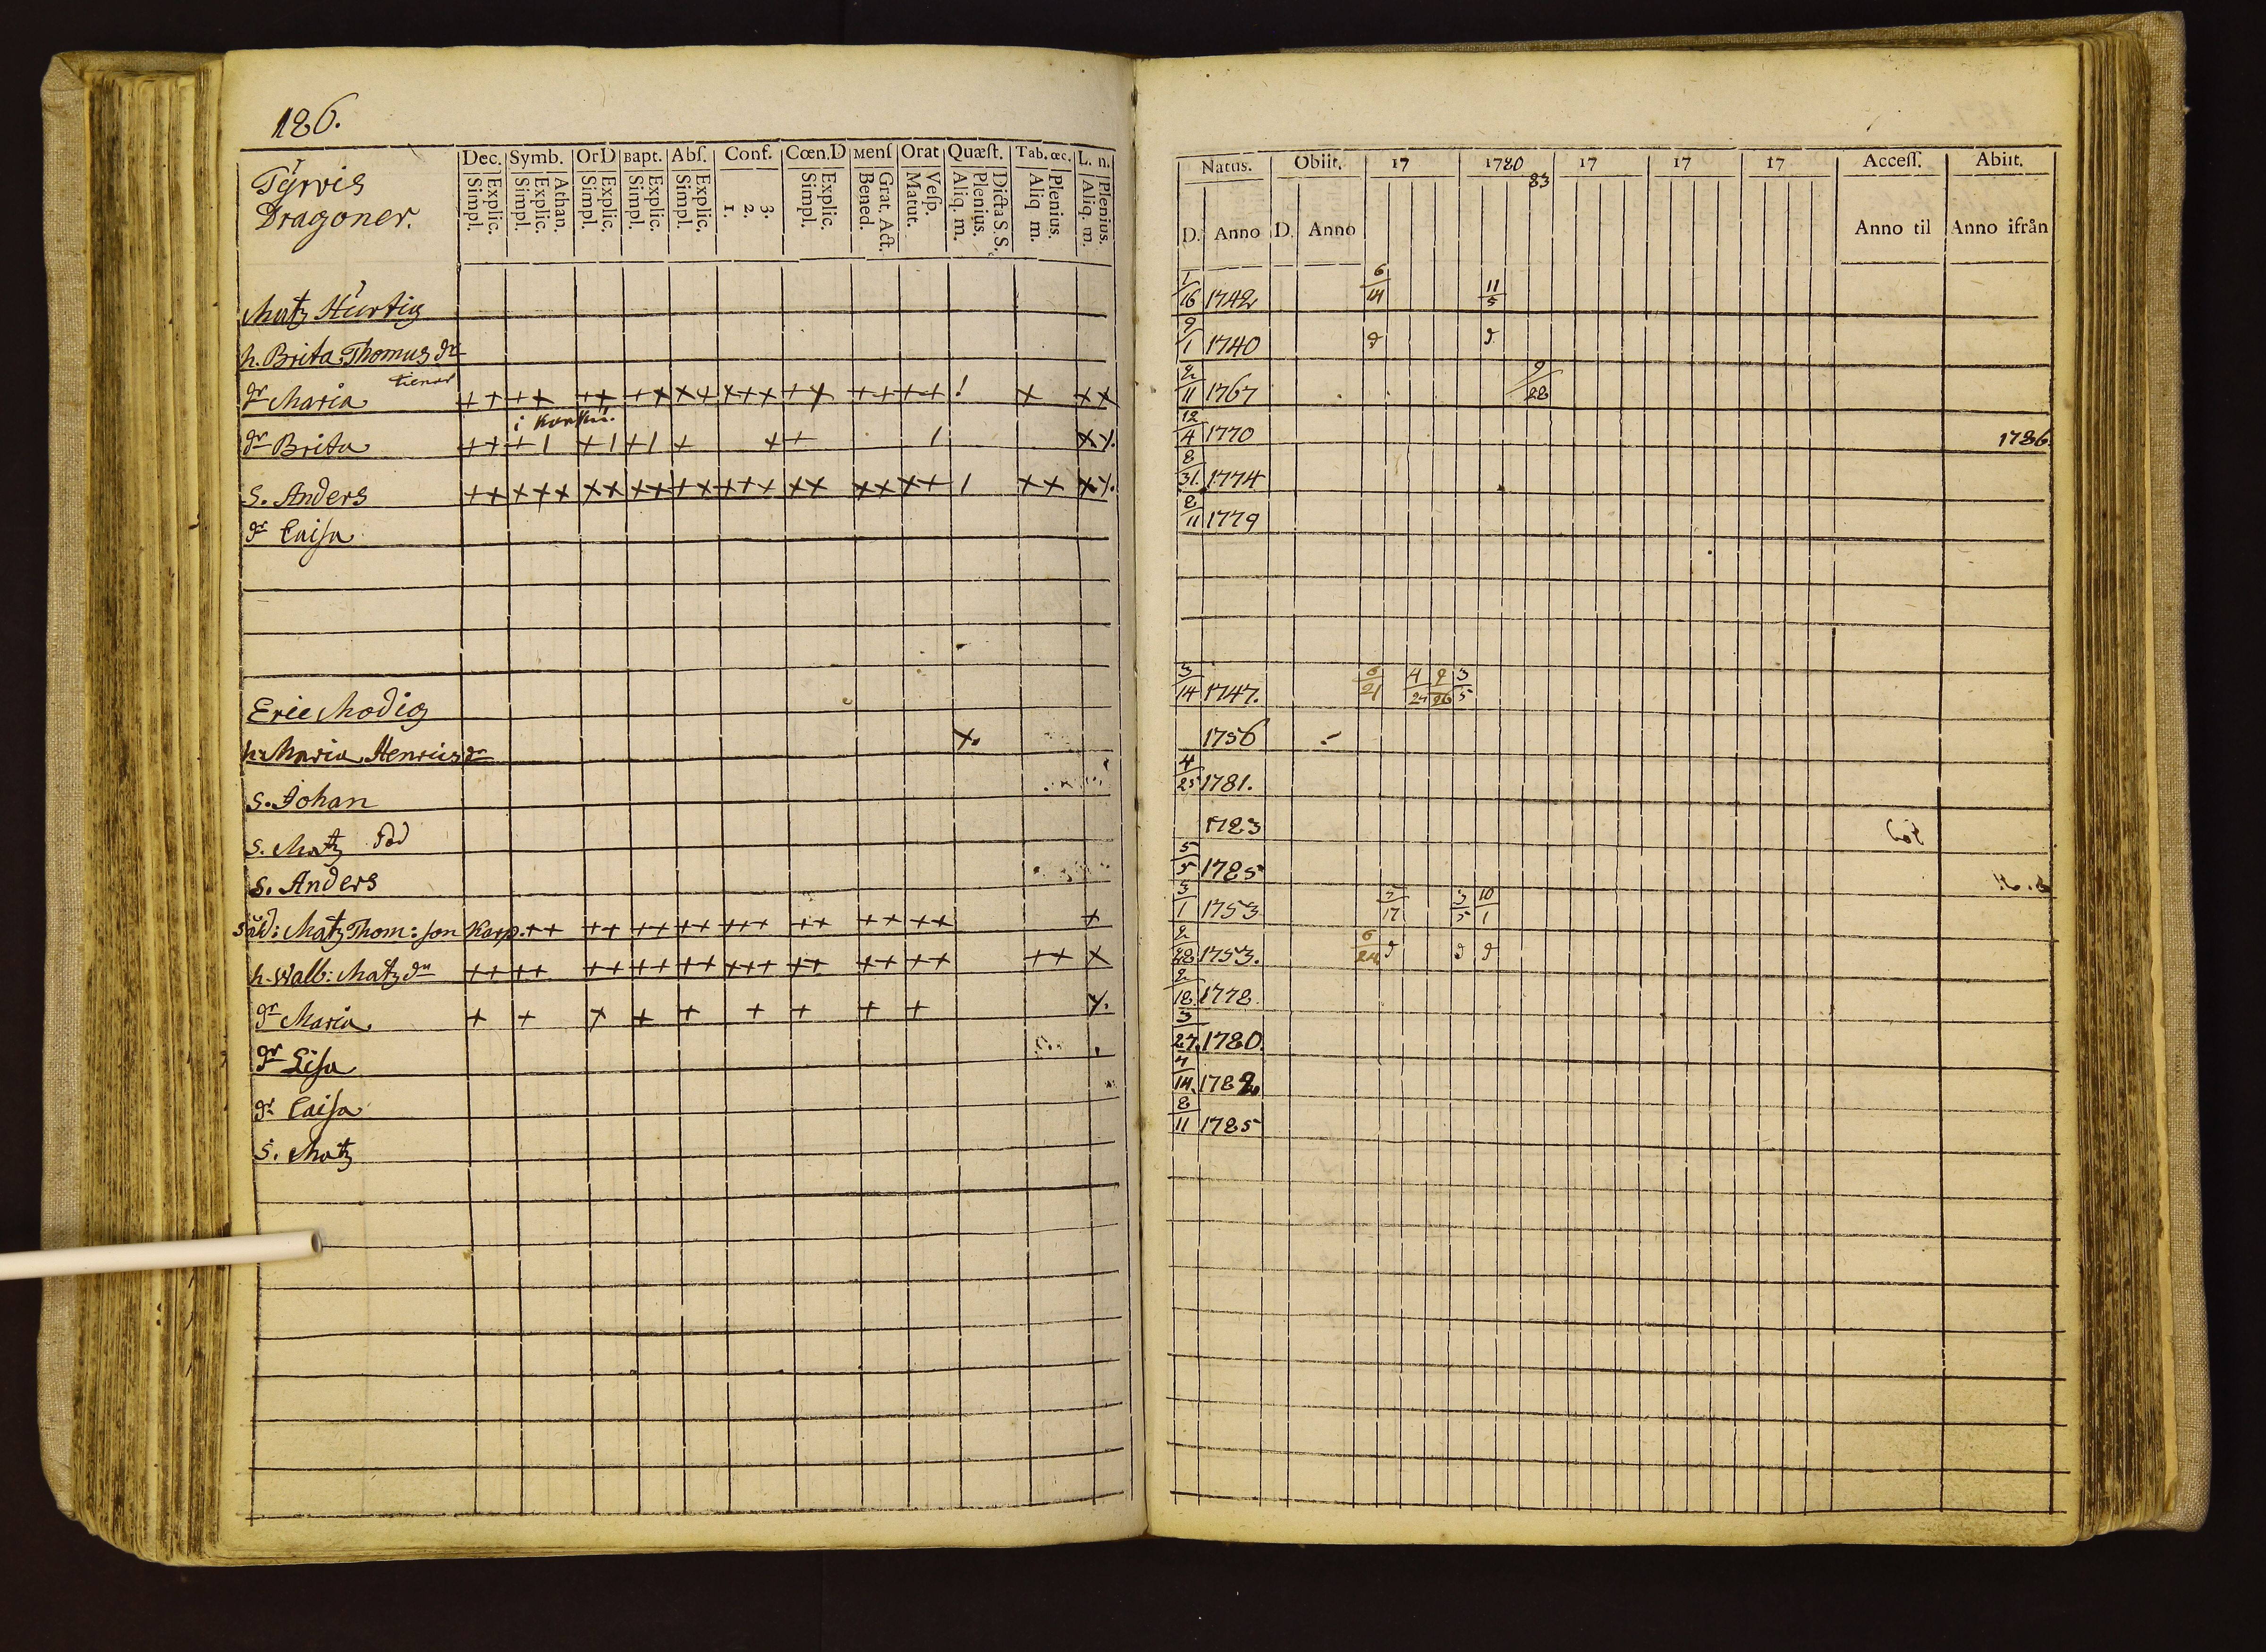 186.
Tyrvis
Dragoner.
Dec. Symb. OrD Bapt. Abſ. Conf. Cœn.D Menſ Orat Quæſt. Tab. œc. L. n.
Simpl. Explic. Simpl. Explic. Athan. Simpl. Explic. Simpl. Explic. Simpl. Explic. 1. 2. 3. Simpl. Explic. Bened. Grat. Act. Matut. Veſp. Aliq. m. Plenius. Dicta S.S. Aliq m. Plenius. Aliq. m. Plenius.
Matz Hurtig
h. Brita Thomus dr
tienar
dr Maria ++ ++ ++ ++ ++ +++ ++ ++ ++ ! + ++
i
dr Brita ++ + 1 + 1 + 1 + + + 1
S. Anders ++ +++ ++ ++ ++ +++ ++ ++ ++ 1 ++
dr Caisa
Eric Modig
h. Maria Henricsdr
S. Johan
S. Matz död
S. Anders
Matz Thom: son Karp. ++ ++ ++ ++ +++ ++ ++ ++ +
h. Walb: Matzdr ++ ++ ++ ++ ++ +++ ++ ++ ++ ++ +
dr Maria. + + + + + + + + +
dr Lisa
dr Caisa
S. Matz
Natus. Obiit. 17 1780 17 17 17 Acceſſ. Abiit.
83
D. Anno D. Anno Anno til Anno ifrån
1/16 1742 6/14 11/5
9/1 1740 d d
2/11 1767 9/28
12/4 1770 1786.
8/31. 1774
8/11 1779
3/14 1747. 6/21 4/24 9/26 3/5
1756
4/25 1781.
1783
5/5 1785
3/1 1753 3/17 3/5 10/1
2/28 1753. 6/24 d d d
2/18. 1778.
3/27. 1780.
4/14. 1782
8/11 1785